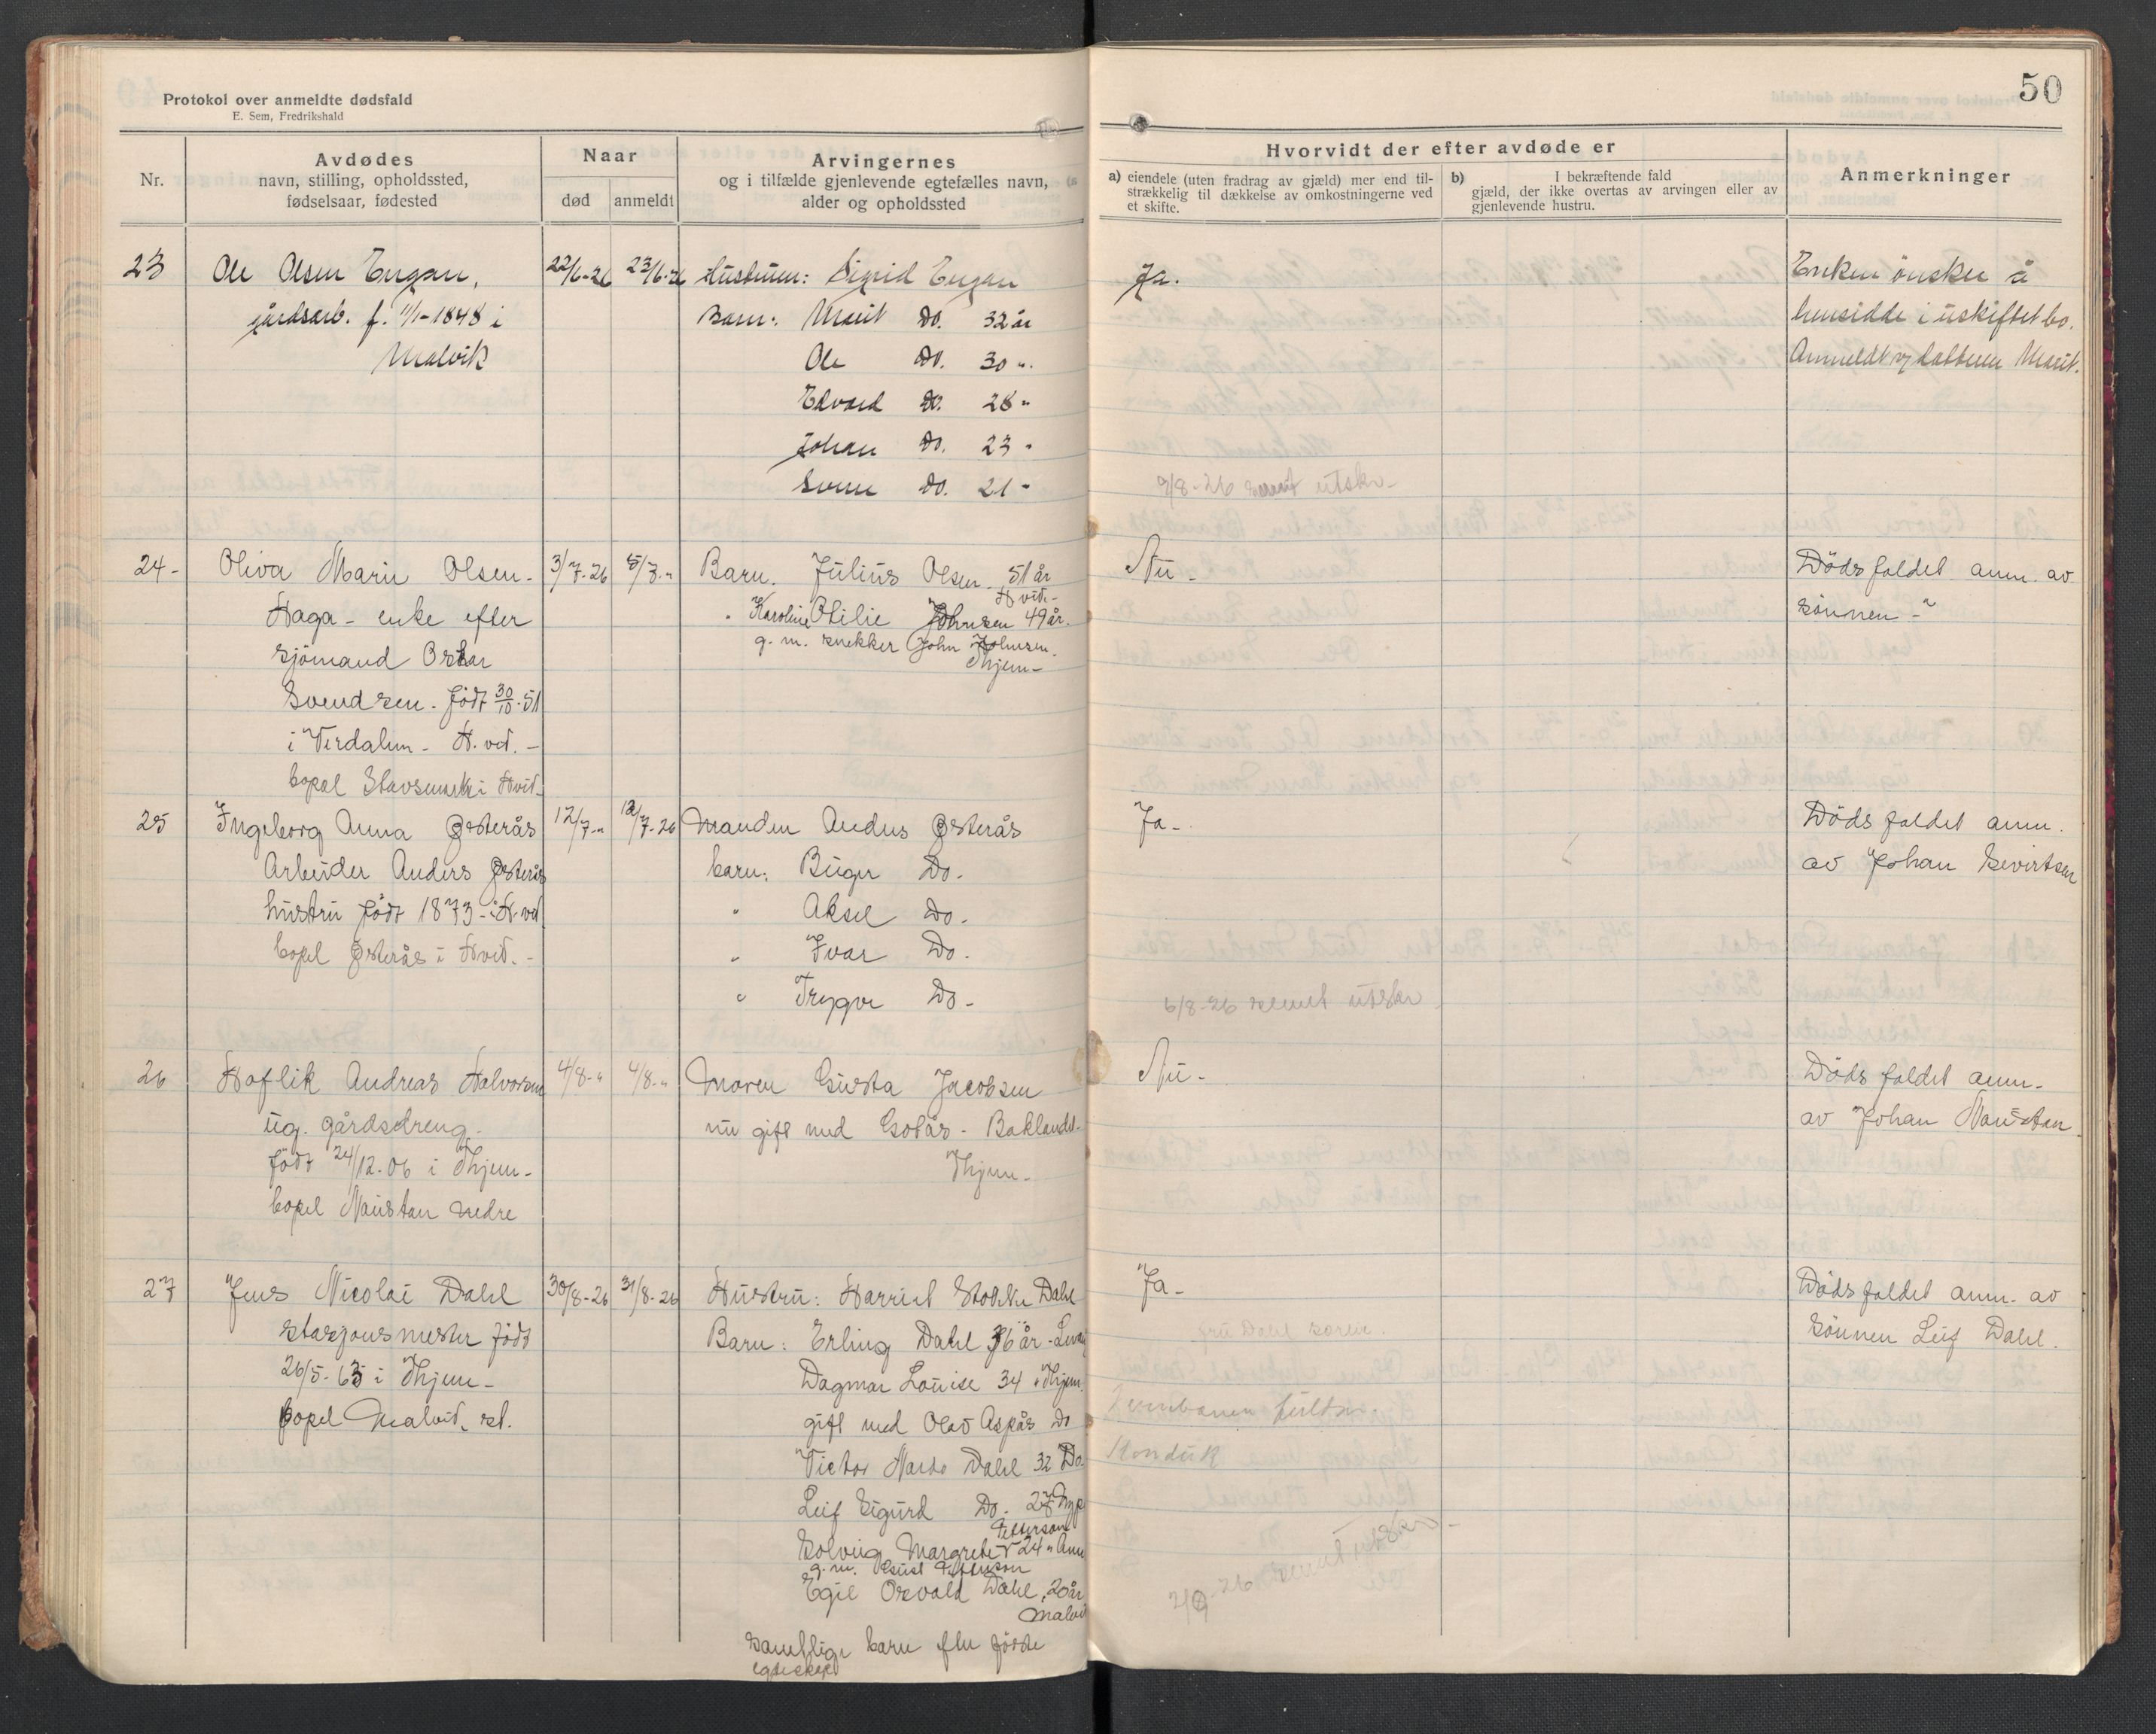 Protokol over anmeldte dødsfald
E. Sem, Fredrikshald
50
Nr.
Avdødes
navn, stilling, opholdssted,
fødselsaar, fødested
Naar
død
anmeldt
Arvingernes
og i tilfælde gjenlevende egtefælles navn,
alder og opholdssted
Hvorvidt der efter avdøde er
a) eiendele (uten fradrag av gjæld) mer end til-
strækkelig til dækkelse av omkostningerne ved
et skifte.
b) I bekræftende fald
gjæld, der ikke overtas av arvingen eller av
gjenlevende hustru.
Anmerkninger
23
Ole Olsen Engan,
gårdsarb. f. 11/1-1848 i
Malvik
22/6-26
23/6-26
Hustruen: Sigrid Engan
Barn: Marit Do. 32 år
Ole Do. 30 "
Edvard Do. 28 "
Johan Do. 23 "
Sverre Do. 21 "
Ja.
9/8-26 sendt utskr-
Enken ønsker å
hensidde i uskiftet bo.
Anmeldt v/ datteren Marit.
24-
Oliva Marie Olsen-
Haga - enke efter
sjömand Oskar
Svendsen. født 30/10-51
i Verdalen - H. vd. -
bopel Stavsmark i Hvid-
3/7-26
5/7-"
Barn. Julius Olsen- 51 år
Hvid.-
" Karoline Otilie Johnsen 49 år.
g. m. snekker John Johnsen.
Thjem-
Nei -
Dödsfaldet anm. av
sönnen -"
25
Ingeborg Anna Østerås
Arbeider Anders Østerås
hustru født 1873- i H. vd
bopel Østerås i Hvid. -
12/7-"
12/7-26
Manden Anders Østerås
barn: Birger Do.
" Aksel Do-
" Ivar Do.
" Trygve Do-
Ja-
6/8-26 sendt utskr
Dödsfaldet anm.
av Johan Sivertsen
26
Haflik Andreas Halvorsen
ug. gårdsdreng-
født 24/12-06 i Thjem-
bopel Naustan nedre
4/8-"
4/8-"
Moren Gusta Jacobsen
nu gift med Gotås - Baklandet-
Thjem-
Nei-
Dödsfaldet anm-
av Johan Naustan-
27
Jens Nicolai Dahl
stasjonsmester født
26/5-63 i Thjem-
bopel Malvik st.
30/8-26
31/8-26
Hustru: Harriet Dahl
Barn: Erling Dahl 36 år -
Dagmar Louise 34 " Thjem.
gift med Olav Aspås Do
Victor Dahl 32 Do.
Leif Sigurd Do- 27
Petterson
Solveig Margrethe 24 "
g. m. Petterson
Egil Osvald Dahl, 20 år
Malvik
samtlige barn efter første
egteskap
Ja-
fru Dahl
2/9-26 sendt utskr-
Dödsfaldet anm. av
sönnen Leif Dahl.